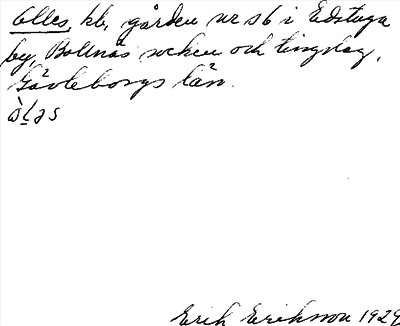 Olles, hb, gården nr 36 i Edstuga
by, Bollnäs socken och tingslag,
Gävleborgs län.
òḷəs
Erik Eriksson 1929